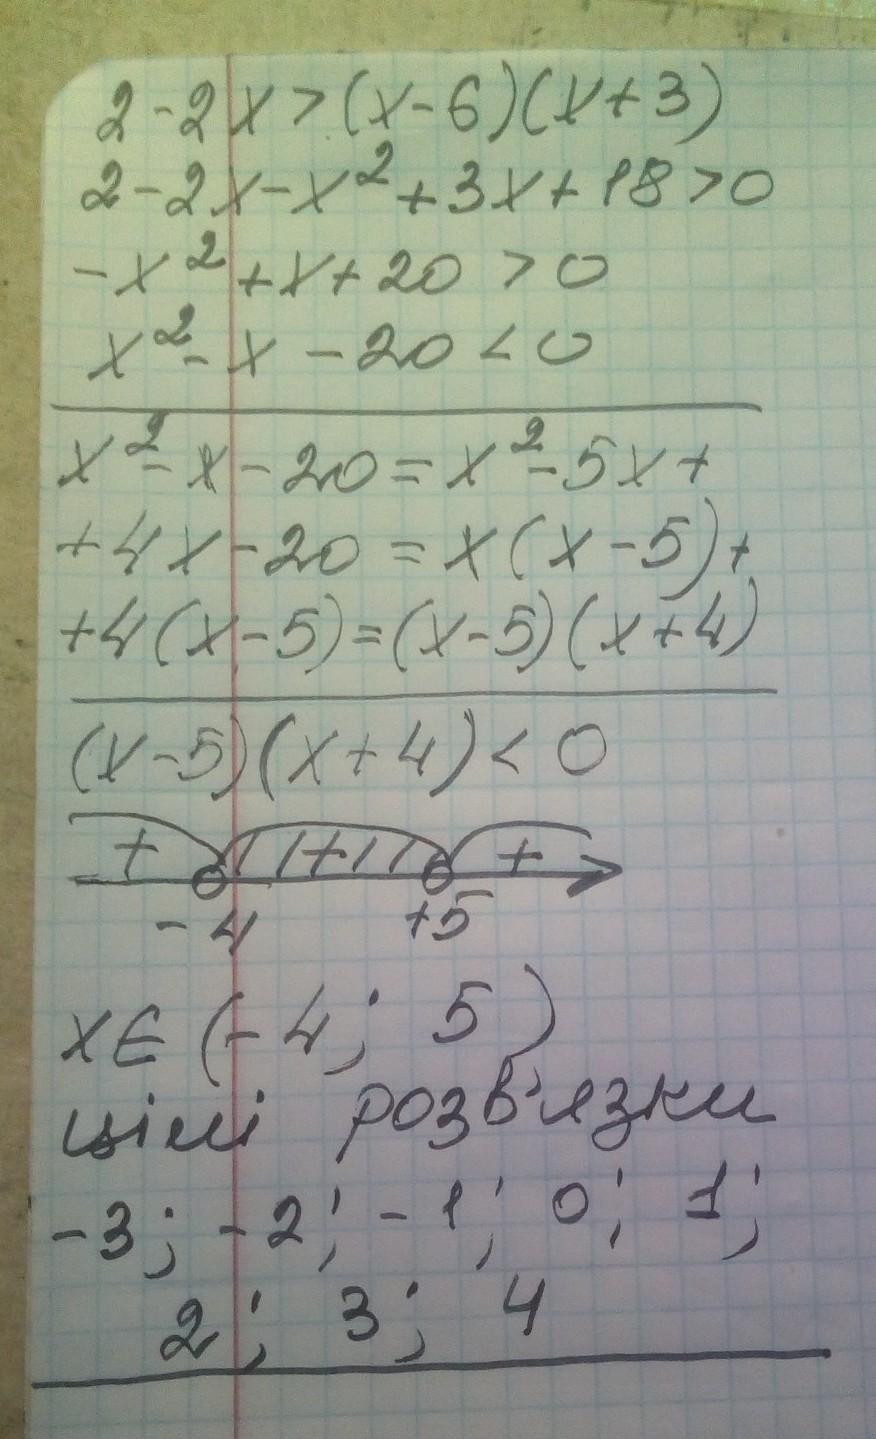 2-2x>(x-6)(x+3)
2-2x-x²+3x+18>0
-x²+x+20>0
x²-x-20<0
x²-x-20=x²-5x+
+4x-20=x(x-5)+
+4(x-5)=(x-5)(x+4)
(x-5)(x+4)<0
+ + +
-4 +5
xϵ(-4; 5)
цілі розв'язки
-3; -2; -1; 0; 1;
2; 3; 4